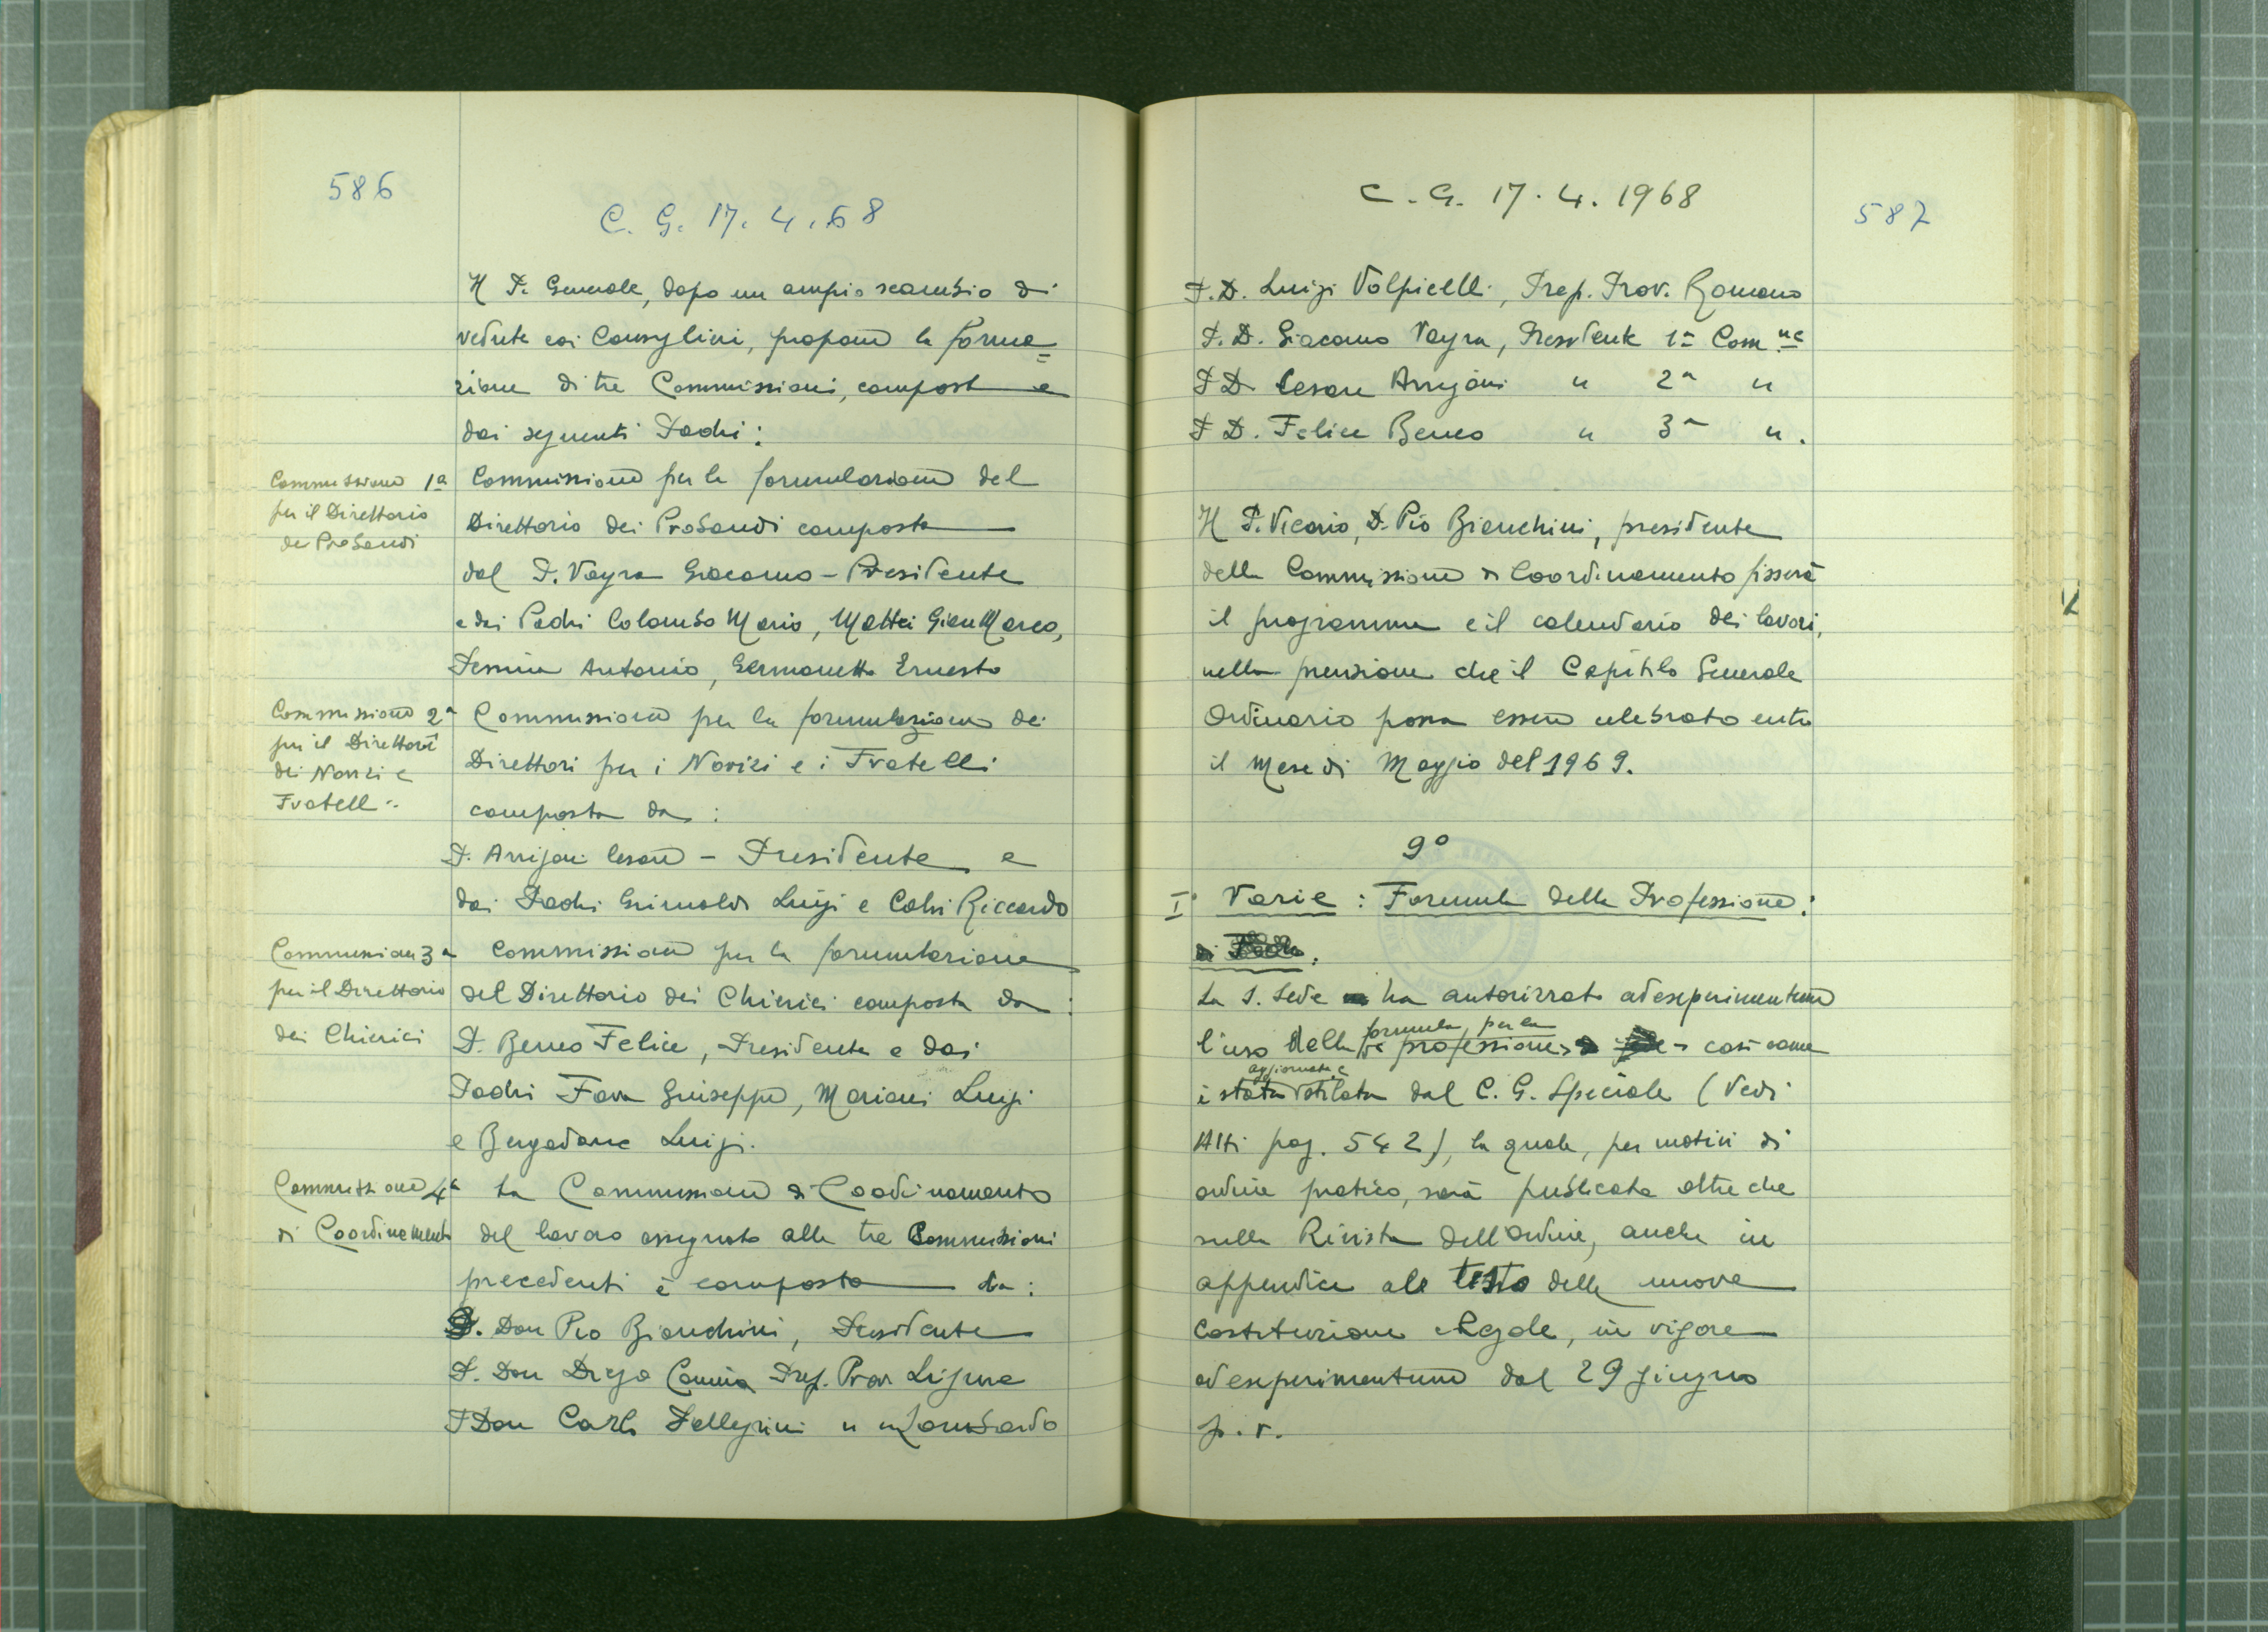 586
C. G. 17.4.68
Il P. Generale, dopo un ampio scambio di
vedute coi Consiglieri, propone la forma=
zione di tre Commissioni, composte
dai seguenti Padri:
Commissione 1a
per il Direttorio
dei Probandi
Commissione per la formulazione del
Direttorio dei Probandi composta
dal P. Vayra Giacomo - Presidente
e dai Padri Colombo Mario, Mattei GianMarco,
Antonio, Germanetto Ernesto
Commissione 2a
per il Direttori
dei Novizi e
Fratelli
Commissione per la formulazione dei
Direttori per i Novizi e i Fratelli
composta da:
P. Arrigoni Cesare - Presidente e
dai Padri Grimaldi Luigi e Calvi Riccardo
Commissione 3a
per il Direttorio
dei Chierici
Commissione per la formulazione
del Direttorio dei Chierici composta da:
P. Beneo Felice, Presidente e dai
Padri Fava Giuseppe, Mariani Luigi
e Bergadano Luigi.
Commissione 4a
di Coordinamento
La Commissione di Coordinamento
del lavoro assegnato alle tre Commissioni
precedenti è composta da:
P. Don Pio Bianchini, Presidente
P. Don Diego Camia Prep. Prov Ligure
P Don Carlo Pellegrini " " Lombardo
C. G. 17.4.1968
587
P. D. Luigi Volpicelli, Prep. Prov. Romano
P. D. Giacomo Vayra, Presidente 1a Com.ne
P D. Cesare Arrigoni " 2a "
P D. Felice Beneo " 3a ".
Il P. Vicario, D. Pio Bianchini, presidente
della Commissione di Coordinamento fisserà
il programma e il calendario dei lavori,
nella previsione che il Capitolo Generale
Ordinario possa essere celebrato entro
il Mese di Maggio del 1969.
9°
I° Varie: Formula della Professione:
di
La S. Sede ha autorizzato ad experimentum
formula, per la
l'uso della professione, così come
aggiornata e
è stata stilata dal C. G. Speciale (Vedi
Atti pag. 542), la quale, per motivi di
ordine pratico, sarà pubblicata oltre che
sulla Rivista dell'Ordine, anche in
appendice al testo delle nuove
Costituzione e Regole, in vigore
ad experimentum dal 29 giugno
p.v.